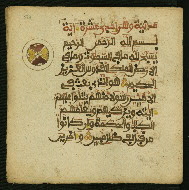 مدنية وهي إحدى عشرة آية
بسم الله الرحمن الرحيم
يسبح لله ما في السموت وما في
الارض الملك القدوس العزيز
الحكيم هو الذي بعث في
الامين رسولا منهم يتلوا عليهم
ءايته ويزكيهم ويعلمهم
الكتب والحكمة وان كانوا
من قبل لفي ضلل مبين وءاخرين